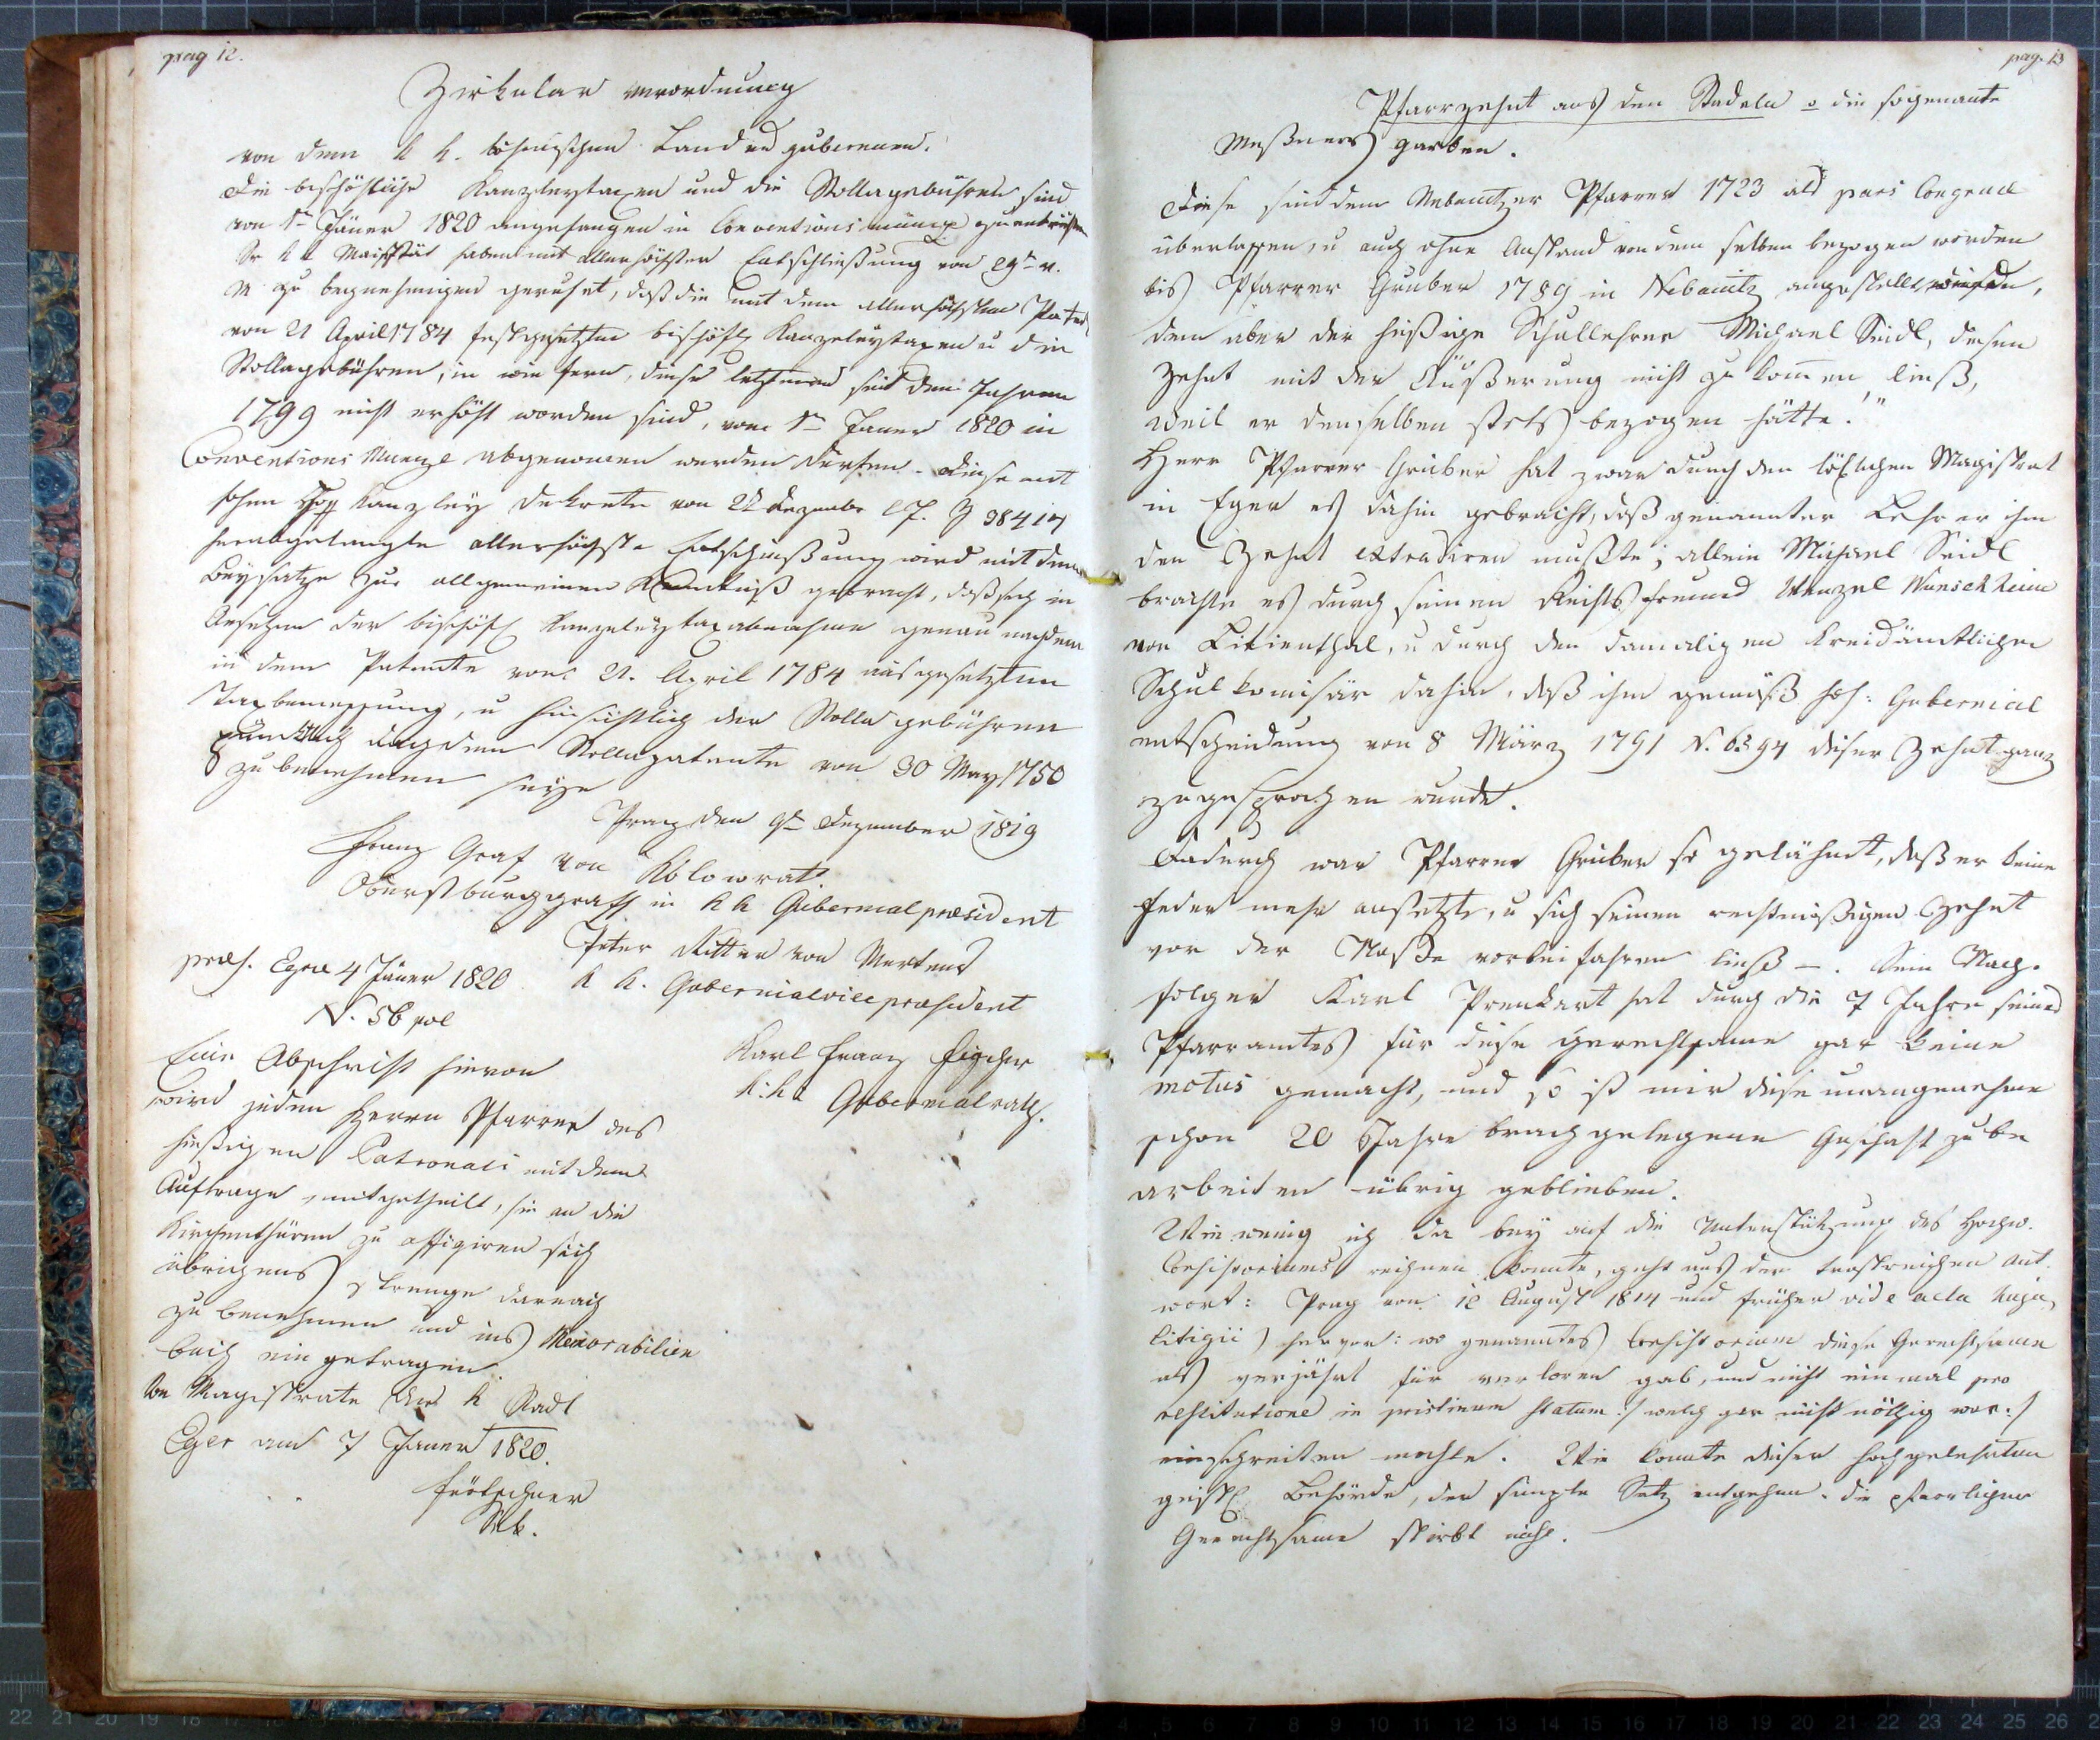 pag 12.
Zirkular verordnung
von dem k k. böhmischen Landes gubernium.
Die bischöfliche Kanzleytaxen und die Stollagebühren sind
von 1ten Jäner 1820 angefangen in Conventions münze zu entrichten
Sr k k Majestät haben mit allerhöchster Entschließung von 29ten v.
M zu begnehmigen geruhet, daß die mit dem allerhöchsten Patent
von 21 April 1784 festgesetzten bischöfl Kanzeleytaxen u die
Stollagebühren, in wie fern, diese letztern seit dem Jahren
1799 nicht erhöht worden sind, vom 1ten Janer 1820 in
Conventions Münze abgenomen werden dürfen. Diese mit
hohen Hof Kanzley Dekrete von 2ten Dezember l J. Z 38417
herabgelangte allerhöchste Entschließung wird mit dem
Beysatze zur allgemeinen Kenntniß gebracht, daß sich in
Ansehen der bischöfl Kanzeleytaxabnahme genau nach dem
in dem Patente vom 21. April 1784 aus gesetzten
Taxbemessung, u hinsichtlich der Stolla gebühren
pünktlich nach dem Stollapatente von 30 May 1750
zu benehmen seye
Prag den 9ten Dezember 1819
Franz Graf von Kolowrat
Oberstburggraf in k k Gubernial præsident
Peter Ritter von Mertens
k k. Gubernialvice præsident
præs. Egræ 4 Jäner 1820
N. 56 pol
Karl Franz Fischer
k: k Gubernialrath.
Eine Abschrift hievon
wird jeden Herrn Pfarrer des
hießigen Patronats mit dem
Auftrage mitgetheilt, sie an die
Kirchenthüren zu affigiren sich
übrigens strenge darnach
zu benehmen und ins Memorabilien
buch ein getragen
Vom Magistrate der k Stadt
Eger am 7 Janer 1820.
Frötschner
Sek.
pag. 13
Pfarrzehnt aus den Stadeln o die sogenante
Meßners garben.
Diese sind dem Nebanitzer Pfarrer 1723 als pars Congruæ
überlassen, u auch ohne Anstand von dem selben bezogen worden
bis Pfarrer Gruber 1789 in Nebanitz angestellt wurde,
dem aber der hießige Schullehrer Michael Seidl, diesen
Zehnt mit der Äußerung nicht zu komen ließ,
weil er denselben stets bezogen hätte."
Herr Pfarrer Gruber hat zwar durch den löblichen Magistrat
in Eger es dahin gebracht, daß genannter Lehrer ihm
den Zehnt extradiren mußte; allein Michael Seidl
brachte es durch seinen Rechts freund Wenzel Wunschheim
von Lilienthal, u durch den damaligen Kreisämtlichen
Schul komisär dahin, daß ihm gemäß hoh: Gubernial
entscheidung von 8 März 1791 N. 6394 diser Zehnt ganz
zugesprochen wurde.
Dadurch war Pfarrer Gruber so gelähmt, daß er keine
Feder mehr ansetzte, u sich seinen rechtmäßigen Zehnt
vor der Nase vorbei fahren ließ –. Sein Nach-
folger Karl Prenkart hat durch die 7 Jahre seines
Pfarramtes für diese Gerechtsame gar keine
motus gemacht, und so ist mir diese unangenehme
schon 20 Jahre brach gelegene Geschäft zu be
arbeiten übrig geblieben.
Wie wenig ich da bey auf die Unterstützung des Hochw.
Consistoriums rechnen konnte, geht aus der trostreichen Ant-
wort: Prag von 12 August 1814 und früher vide acta hujus
litigii) hervor: wo genanntes Consistorium diese Gerechtsame
als verjährt für verloren gab, und nicht einmal pro
restitutione in pristinum statum :/ welch gar nicht nöthig war:/
einschreiten mochte. Wie konnte dieser hochgelehrten
geistl Behörde, der simple Satz entgehen. die pfarrliche
Gerechtsame stirbt nicht.